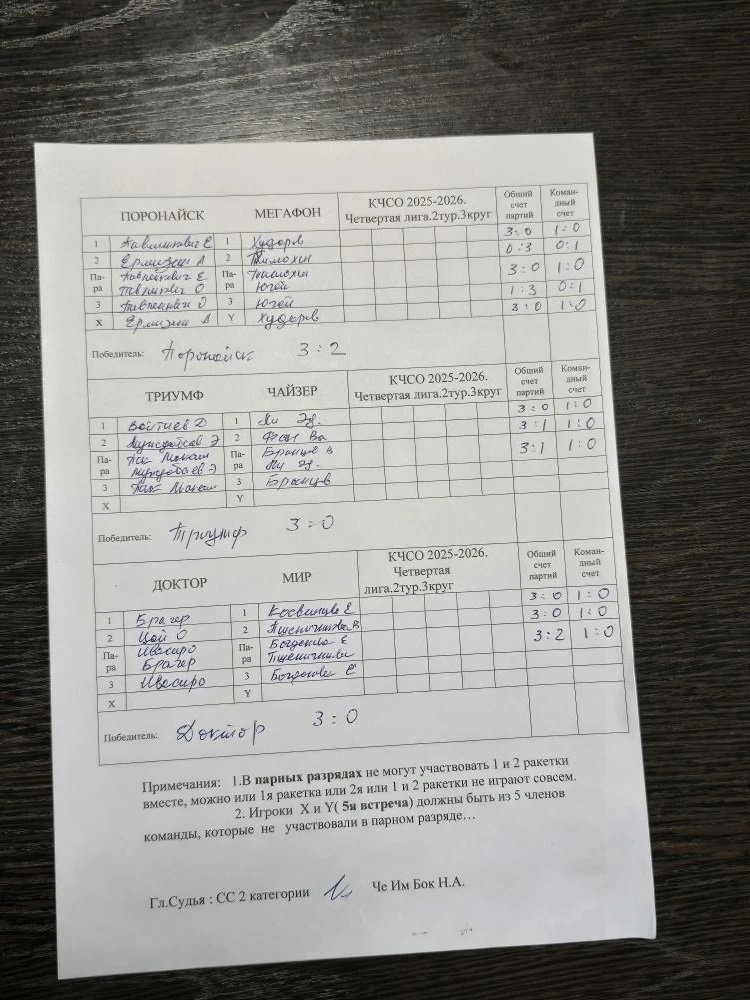 ПОРОНАЙСК МЕГАФОН КЧСО 2025-2026. Четвертая лига.2тур.3круг Общий счет партий Коман-дный счет
1 Павлинкевич Е 1 Худоров 3:0 1:0
2 Ермизин А 2 Тимохин 0:3 0:1
Па-ра Е Па-ра Тимохин 3:0 1:0
О Югай
3 О 3 Югай 1:3 0:1
X Ермизин А Y Худоров 3:0 1:0
Победитель: Поронайск 3:2
ТРИУМФ ЧАЙЗЕР КЧСО 2025-2026. Четвертая лига.2тур.3круг Общий счет партий Коман-дный счет
1 Войтиев Д 1 Ли Эд. 3:0 1:0
2 Э 2 Ва 3:1 1:0
Па-ра Пак Максим Па-ра Бранцев В 3:1 1:0
Э Ли Э.
3 Пак Максим 3 Бранцев
X Y
Победитель: Триумф 3:0
ДОКТОР МИР КЧСО 2025-2026. Четвертая лига.2тур.3круг Общий счет партий Коман-дный счет
1 Брагер 1 Е 3:0 1:0
2 Цой О 2 Пшеничникова В 3:0 1:0
Па-ра Ивасиро Па-ра Богданова Е 3:2 1:0
Брагер Пшеничникова
3 Ивасиро 3 Богданова Е
X Y
Победитель: Доктор 3:0
Примечания: 1.В парных разрядах не могут участвовать 1 и 2 ракетки
вместе, можно или 1я ракетка или 2я или 1 и 2 ракетки не играют совсем.
2. Игроки X и Y( 5я встреча) должны быть из 5 членов
команды, которые не участвовали в парном разряде…
Гл.Судья : СС 2 категории Че Им Бок Н.А.